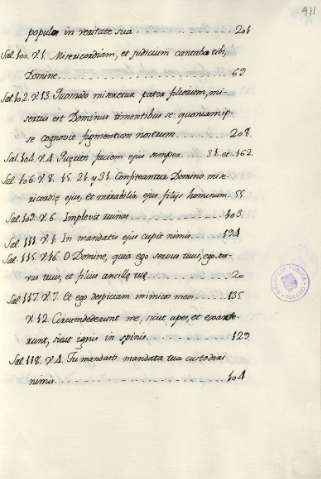 411
populos in veritate sua. 201
Sal. 100. V. 1. Misericordiam, et judicium cantabo tibi,
Domine. 69
Sal. 102. V. 13. Quomodo miseretur pater filiorum, mi-
sertus est Dominus timentibus se: quoniam ip-
se cognovit figmentum nostrum. 208
Sal. 104. V. 4. Quærite faciem ejus semper. 31. et 162.
Sal. 106. V. 8. 15. 21. y 31. Confiteantur Domino mise-
ricordiæ ejus, et mirabilia ejus filijs hominum. 55
Sal. 109. V. 6. Implevit ruinas. 103.
Sal. 111. V. 1. In mandatis ejus cupit nimis. 194
Sal. 115. V. 16. O Domine, quia ego servus tuus, ego ser-
vus tuus, et filius ancillæ tuæ. 20
Sal. 117. V. 7. Et ego despiciam inimicos meos. 135
V. 12. Circumdederunt me, sicut apes, et exarse-
runt, sicut ignis in spinis. 129
Sal. 118. V. 4. Tu mandasti mandata tua custodiri
nimis. 104